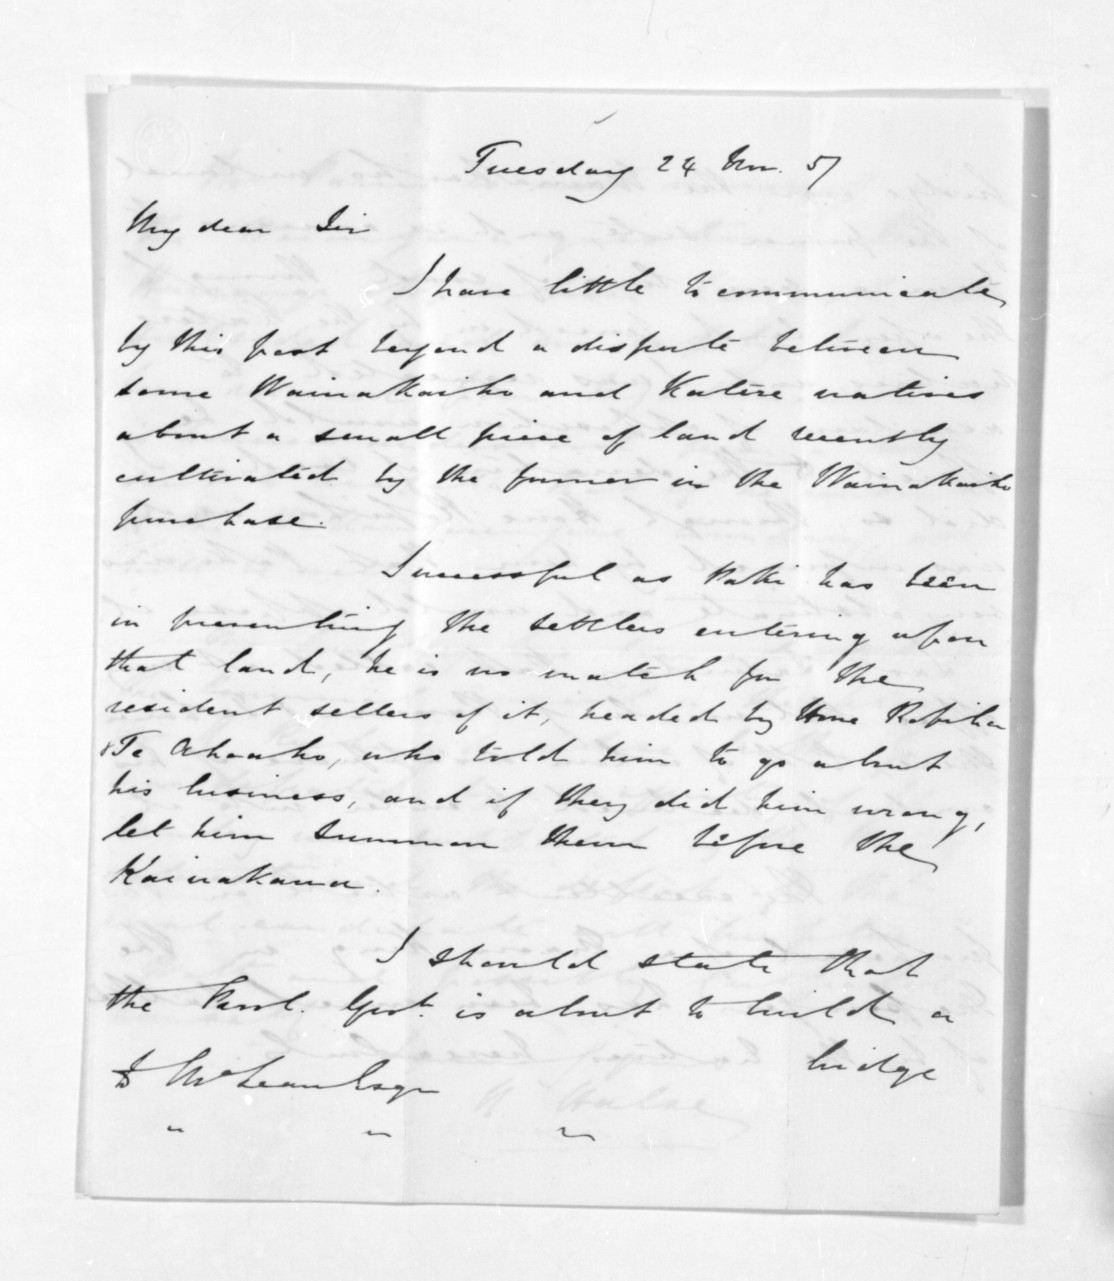 Tuesday 24 Nov. 57
My dear Sir
I have little to communicate
by this post beyond a dispute between
some Waiwakaiho and Katere natives
about a small piece of land recently
cultivated by the former in the Waiwakaiho
purchase.
Successful as Raki has been
in preventing the settlers entering upon
that land, he is no match for the
resident sellers of it, headed by Hone Ropiha
& Te who told him to go about
his business, and if they did him wrong,
let him summon them before the
Kaiwakawa.
I should state that
the Provl. Govt. is about to build a
bridge
D McLean Esqr
" " "